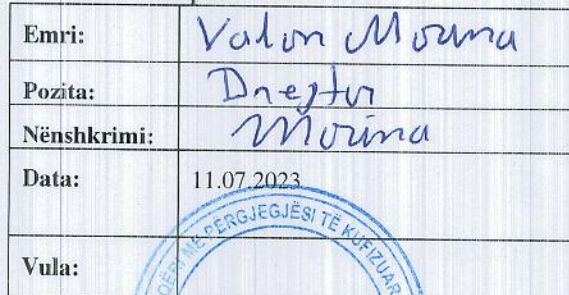 Emri: Valon Morina
Pozita: Drejtor
Nënshkrimi: Morina
Data: 11.07.2023
ME PËRGJEGJËSI TË KUFIZUAR
Vula: